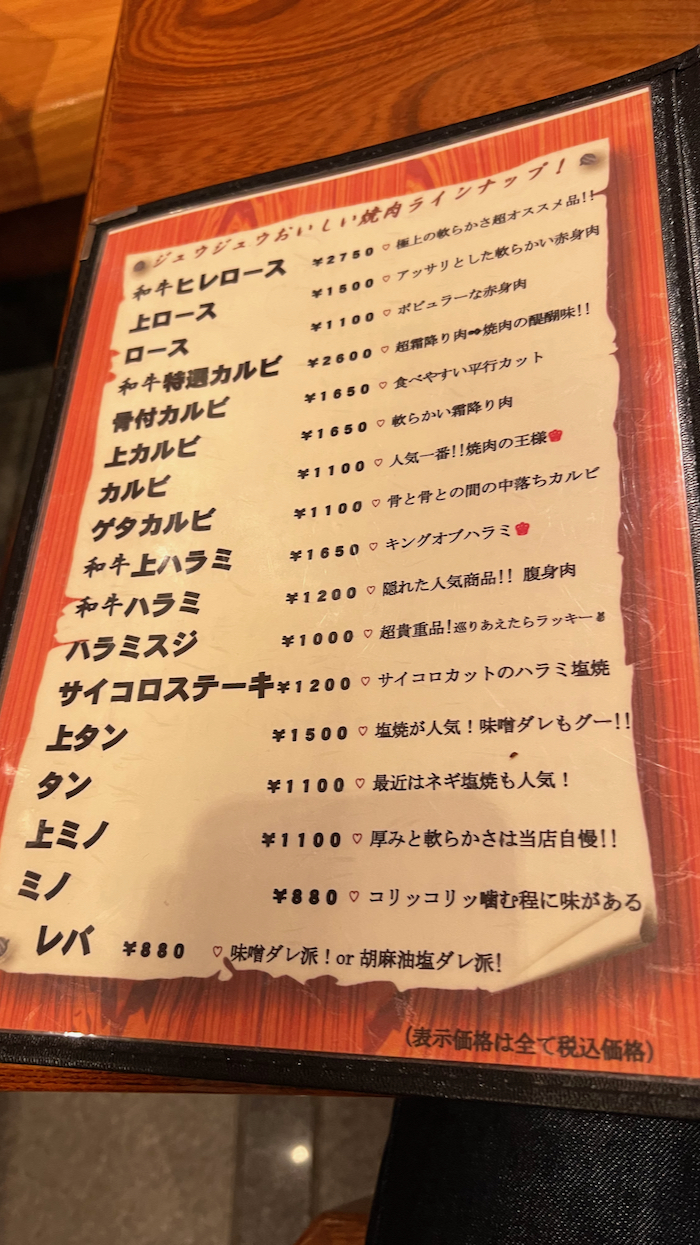 ジュウジュウおいしい焼肉ラインナップ！
和牛ヒレロース ¥2750 ♡ 極上の軟らかさ超オススメ品!!
上ロース ¥1500 ♡ アッサリとした軟らかい赤身肉
ロース ¥1100 ♡ ポピュラーな赤身肉
和牛特選カルビ ¥2600 ♡ 超霜降り肉➡焼肉の醍醐味!!
骨付カルビ ¥1650 ♡ 食べやすい平行カット
上カルビ ¥1650 ♡ 軟らかい霜降り肉
カルビ ¥1100 ♡ 人気一番!!焼肉の王様
ゲタカルビ ¥1100 ♡ 骨と骨との間の中落ちカルビ
和牛上ハラミ ¥1650 ♡ キングオブハラミ
和牛ハラミ ¥1200 ♡ 隠れた人気商品!! 腹身肉
ハラミスジ ¥1000 ♡ 超貴重品!巡りあえたらラッキー✌
サイコロステーキ ¥1200 ♡ サイコロカットのハラミ塩焼
上タン ¥1500 ♡ 塩焼が人気！味噌ダレもグー!!
タン ¥1100 ♡ 最近はネギ塩焼も人気！
上ミノ ¥1100 ♡ 厚みと軟らかさは当店自慢!!
ミノ ¥880 ♡ コリッコリッ噛む程に味がある
レバ ¥880 ♡ 味噌ダレ派！or 胡麻油塩ダレ派!
(表示価格は全て税込価格)